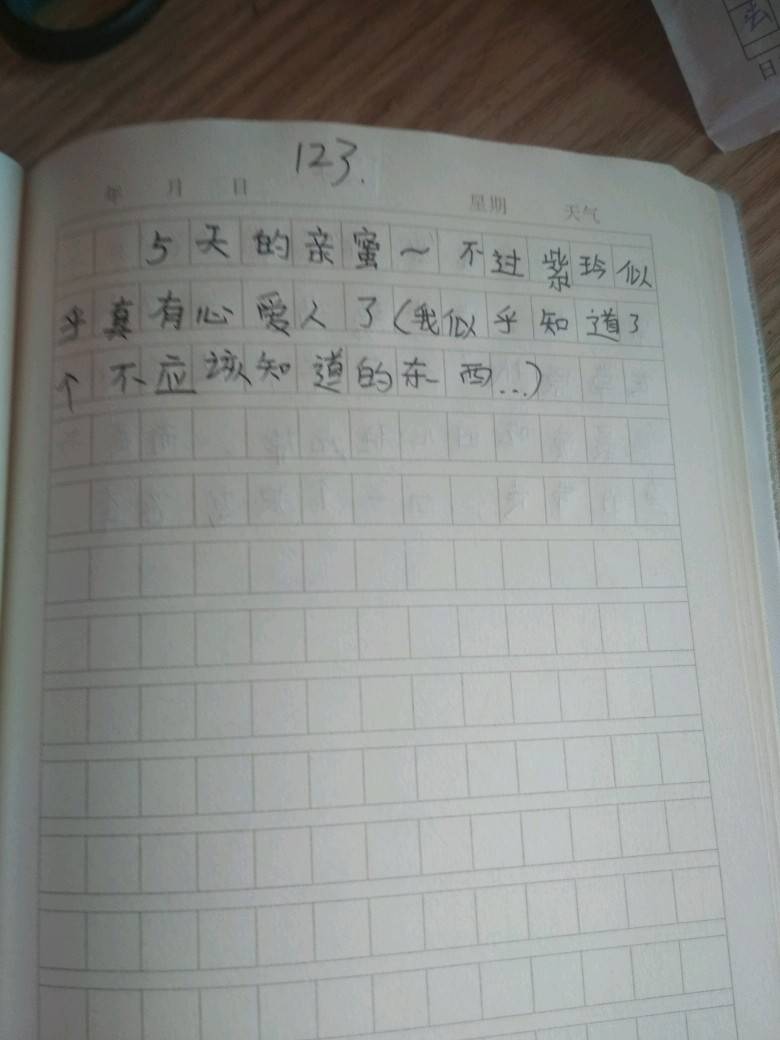 123.
年 月 日 星期 天气
5天的亲蜜～不过紫玲似
乎真有心爱人了(我似乎知道了
个不应该知道的东西...)